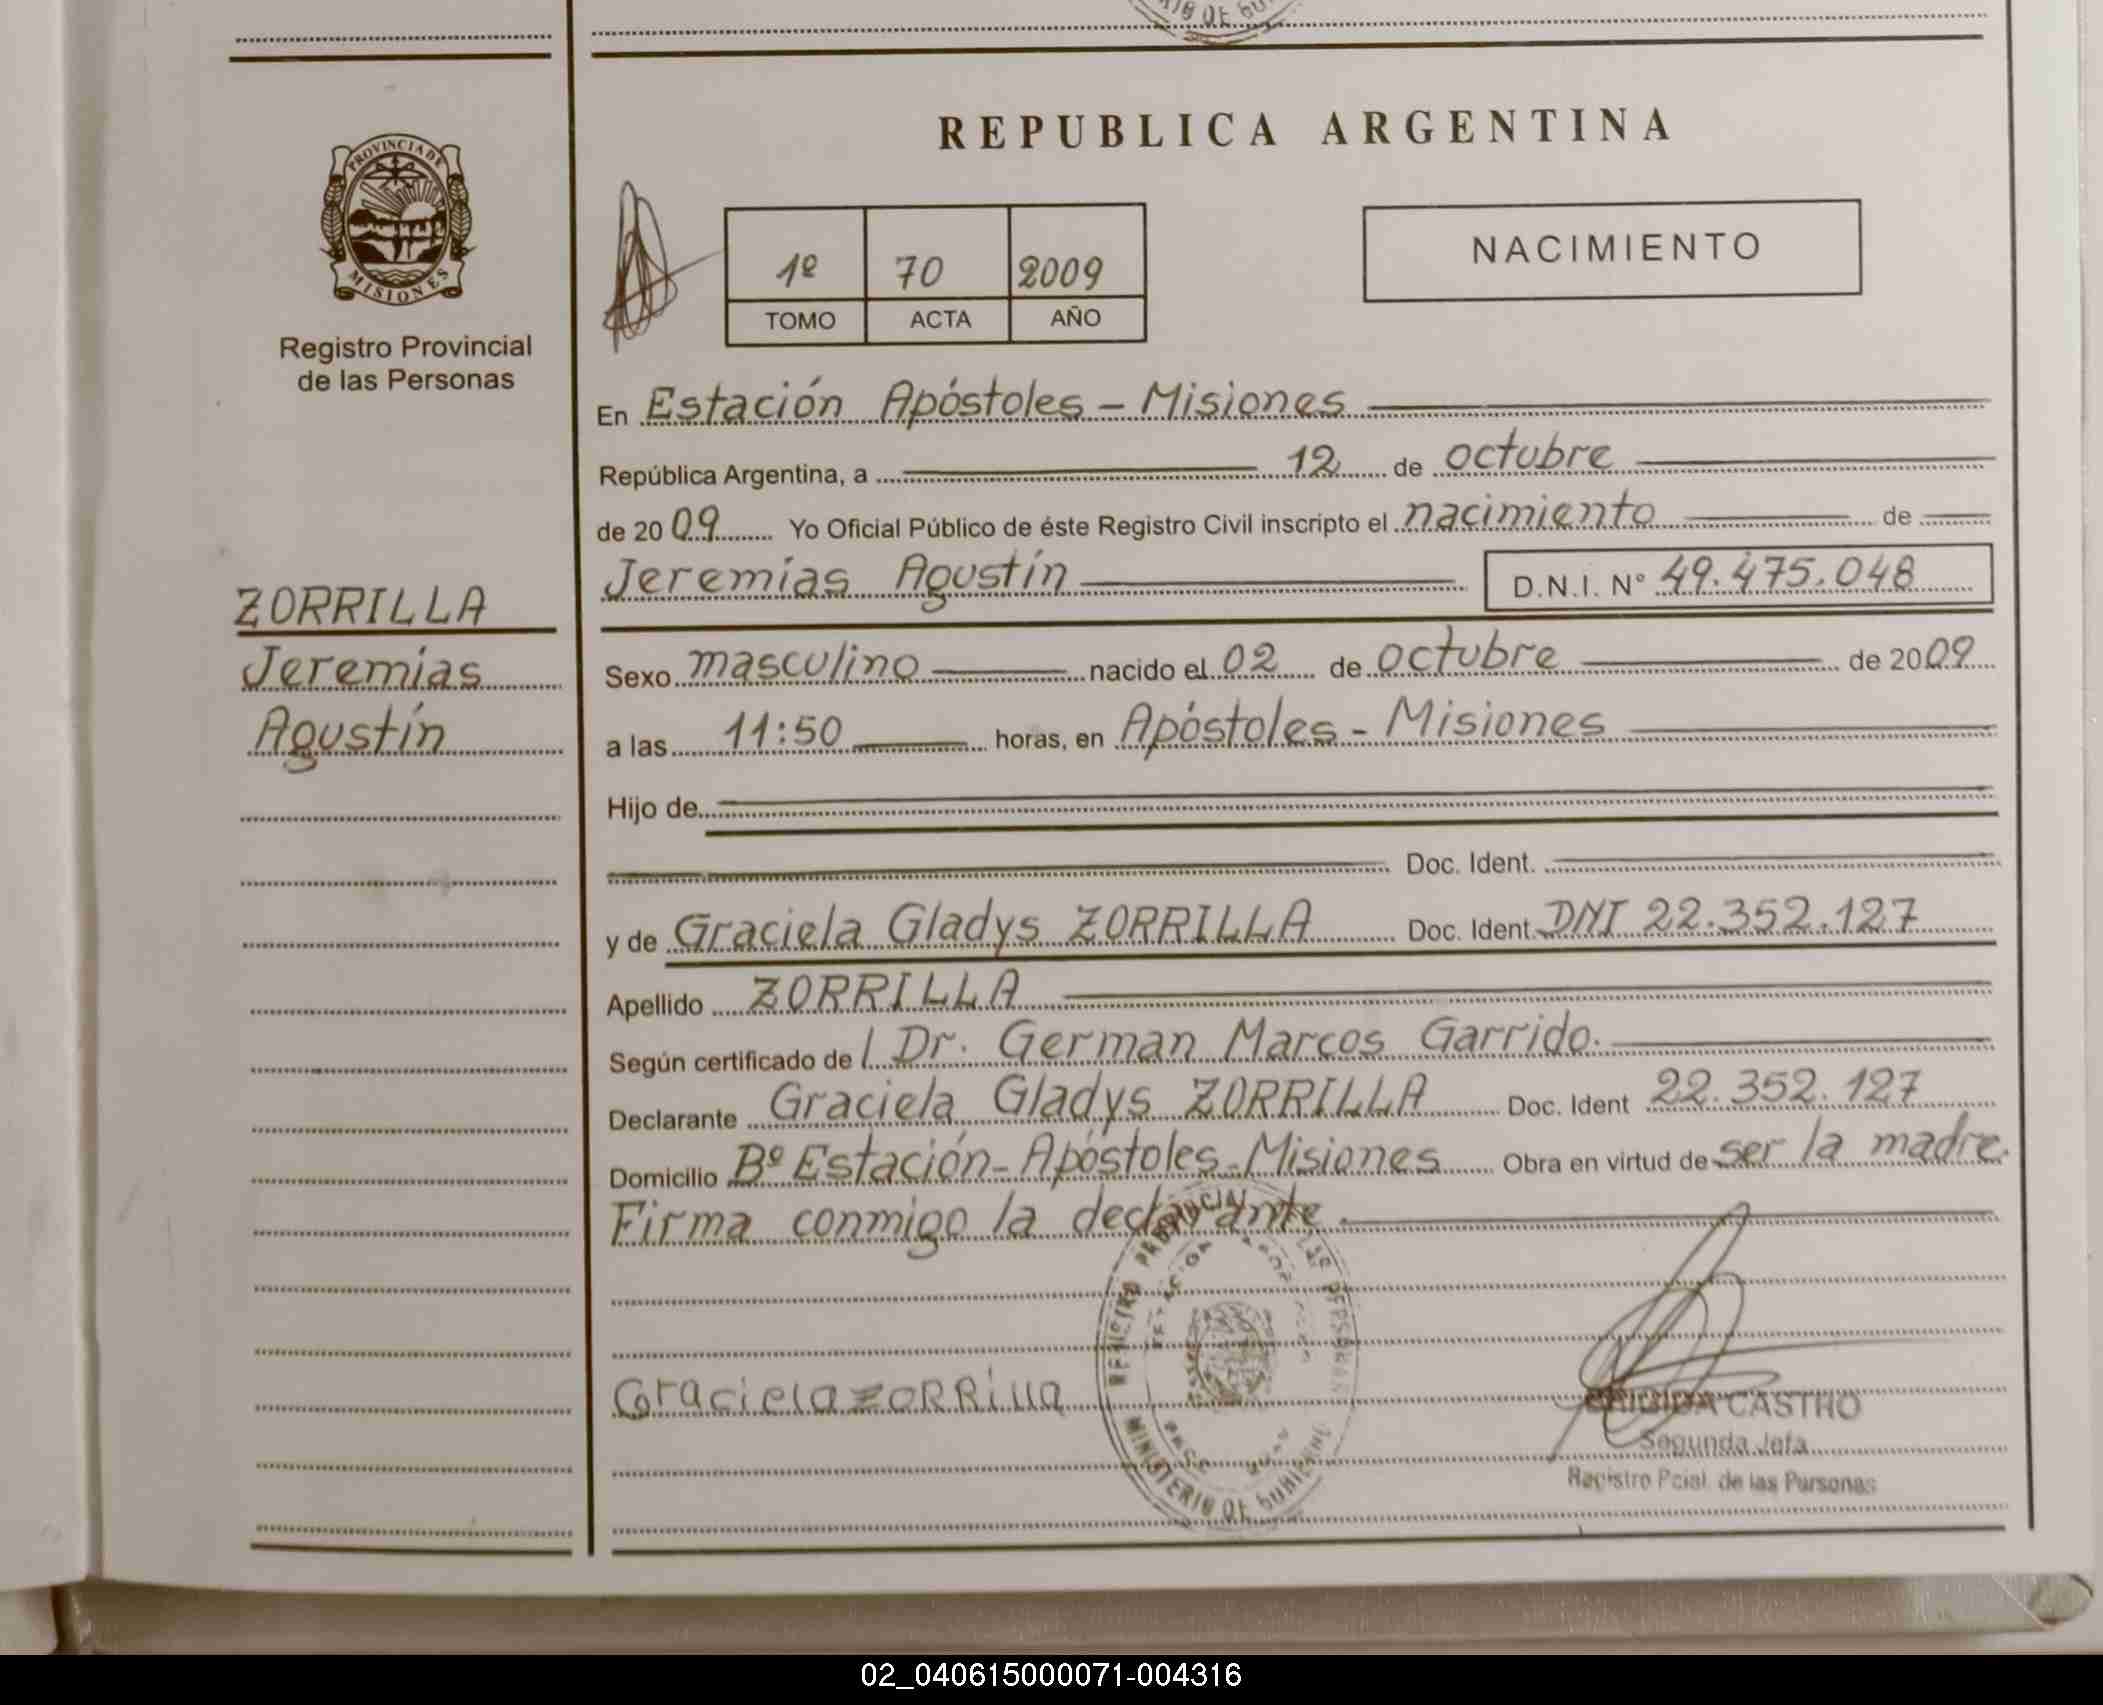 REPUBLICA ARGENTINA
PROVINCIA DE
MISIONES
Registro Provincial
de las Personas
1º 70 2009
TOMO ACTA AÑO
NACIMIENTO
En Estación Apóstoles - Misiones
República Argentina, a 12 de octubre
de 2009 Yo Oficial Público de éste Registro Civil inscripto el nacimiento de
Jeremías Agustín D.N.I. Nº 49.475.048
ZORRILLA
Jeremías
Agustín
Sexo masculino nacido el 02 de octubre de 2009
a las 11:50 horas, en Apóstoles - Misiones
Hijo de
Doc. Ident.
y de Graciela Gladys ZORRILLA Doc. Ident. DNI 22.352.127
Apellido ZORRILLA
Según certificado de l Dr. German Marcos Garrido.
Declarante Graciela Gladys ZORRILLA Doc. Ident 22.352.127
Domicilio Bº Estación - Apóstoles - Misiones Obra en virtud de ser la madre.
Firma conmigo la declarante.
Graciela ZORRilla
REGISTRO PROVINCIAL LAS PERSONAS
MINISTERIO DE GOBIERNO
CASTRO
Segunda Jefa
Registro Pcial. de las Personas
02_040615000071-004316